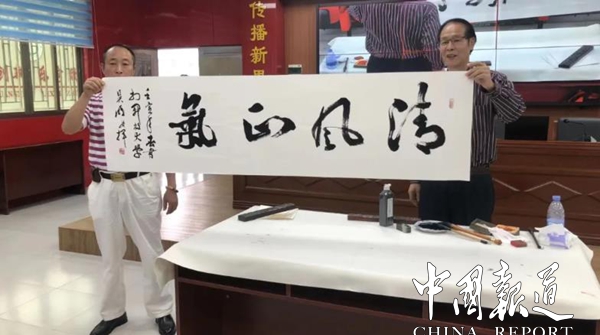 传播新思
清风正氣
壬寅年
科技大学
中國報道
CHINA REPORT